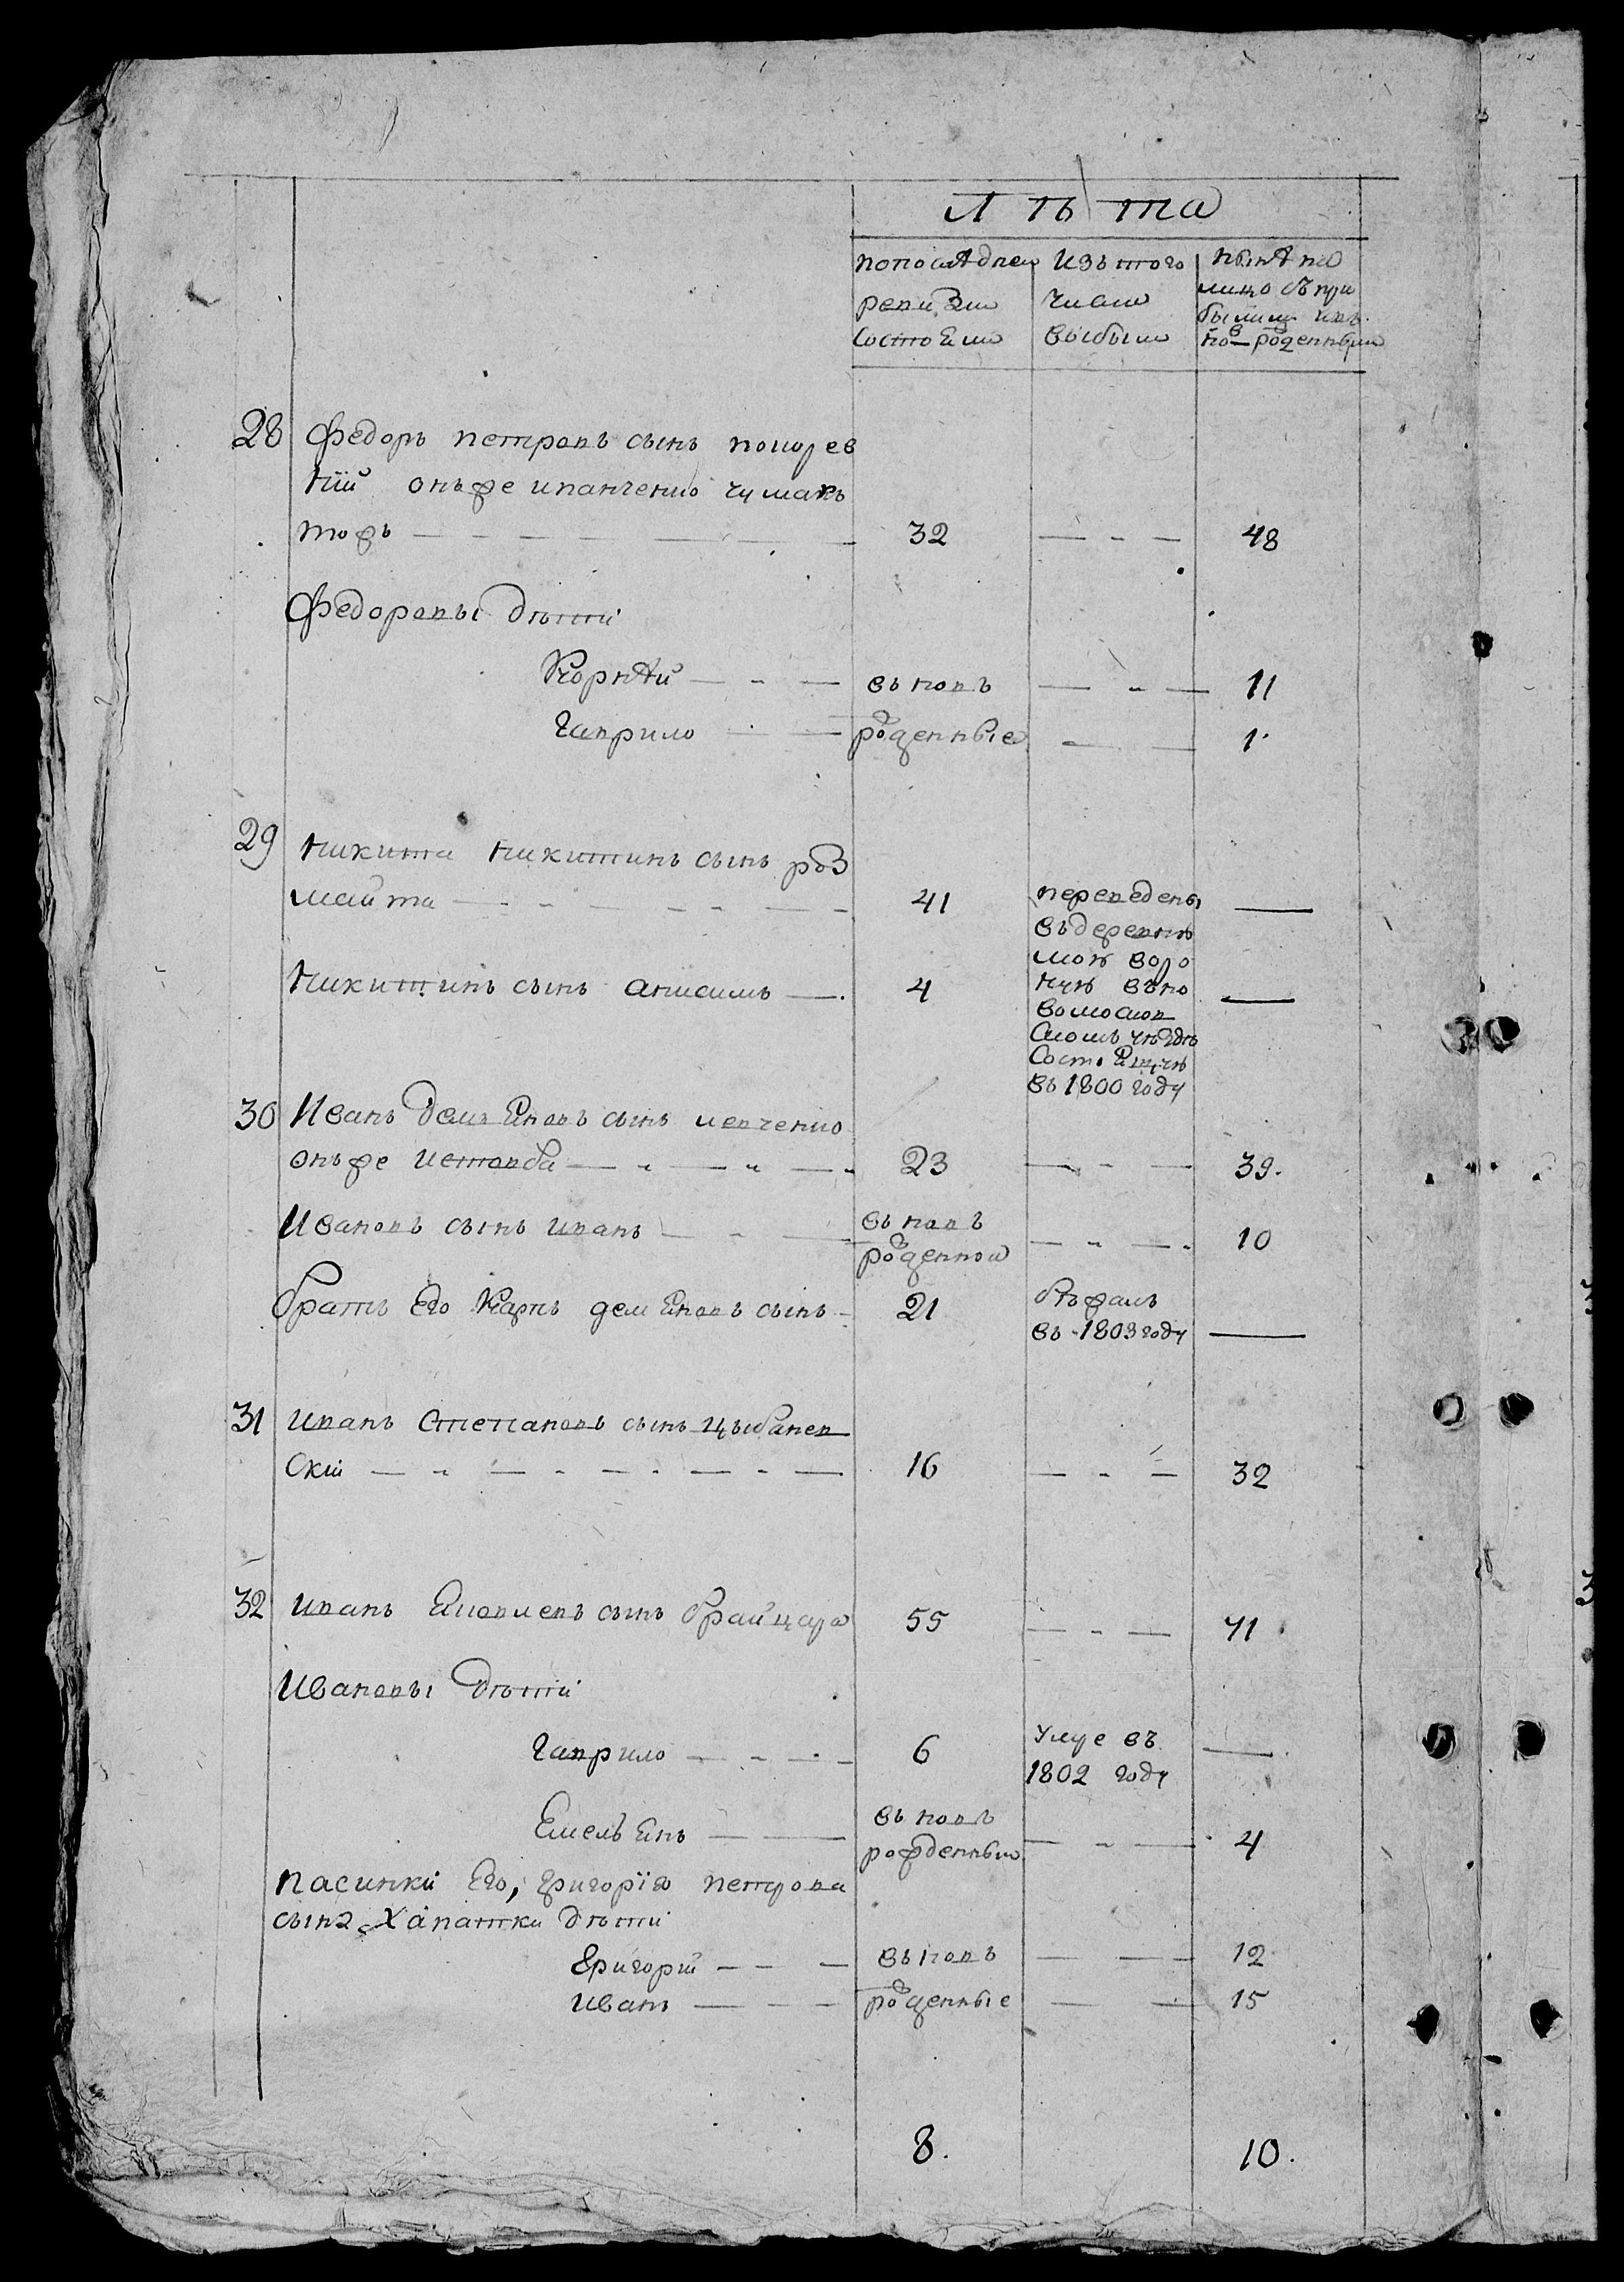 Лѣта
попослѣдней ревизии состояло
изътого числа выбыло
нынѣ на лицо съ при былыми и въ новъ рожденными
28 Федоръ петровъ сынъ
онъже иванченко чумакъ
тожъ 32 48
Федоровы дѣти
Корнѣй въ новъ 11
Гаврило рожденные 1
29 Никита Никитинъ сынъ роз
майта 41 переведены въ деревню
Никитинъ сынъ анисимъ 4
въ 1800 году
30 Иванъ Демьяновъ сынъ левченко
онъже 23 39.
Ивановъ сынъ иванъ въ новъ рожденной 10
братъ Его Карпъ демьяновъ сынъ 21 бѣжалъ въ 1803 году
31 иванъ Степановъ сынъ цыбанев
скій 16 32
32 иванъ Яковлевъ сынъ брайцара 55 71
Ивановы дѣти
Гаврило 6 Умре въ 1802 году
Емельянъ въ новъ рожденный 4
пасинки Его, григорія петрова
сына Хапатки дѣти
Григорій въ новъ 12
иванъ рожденные 15
8. 10.